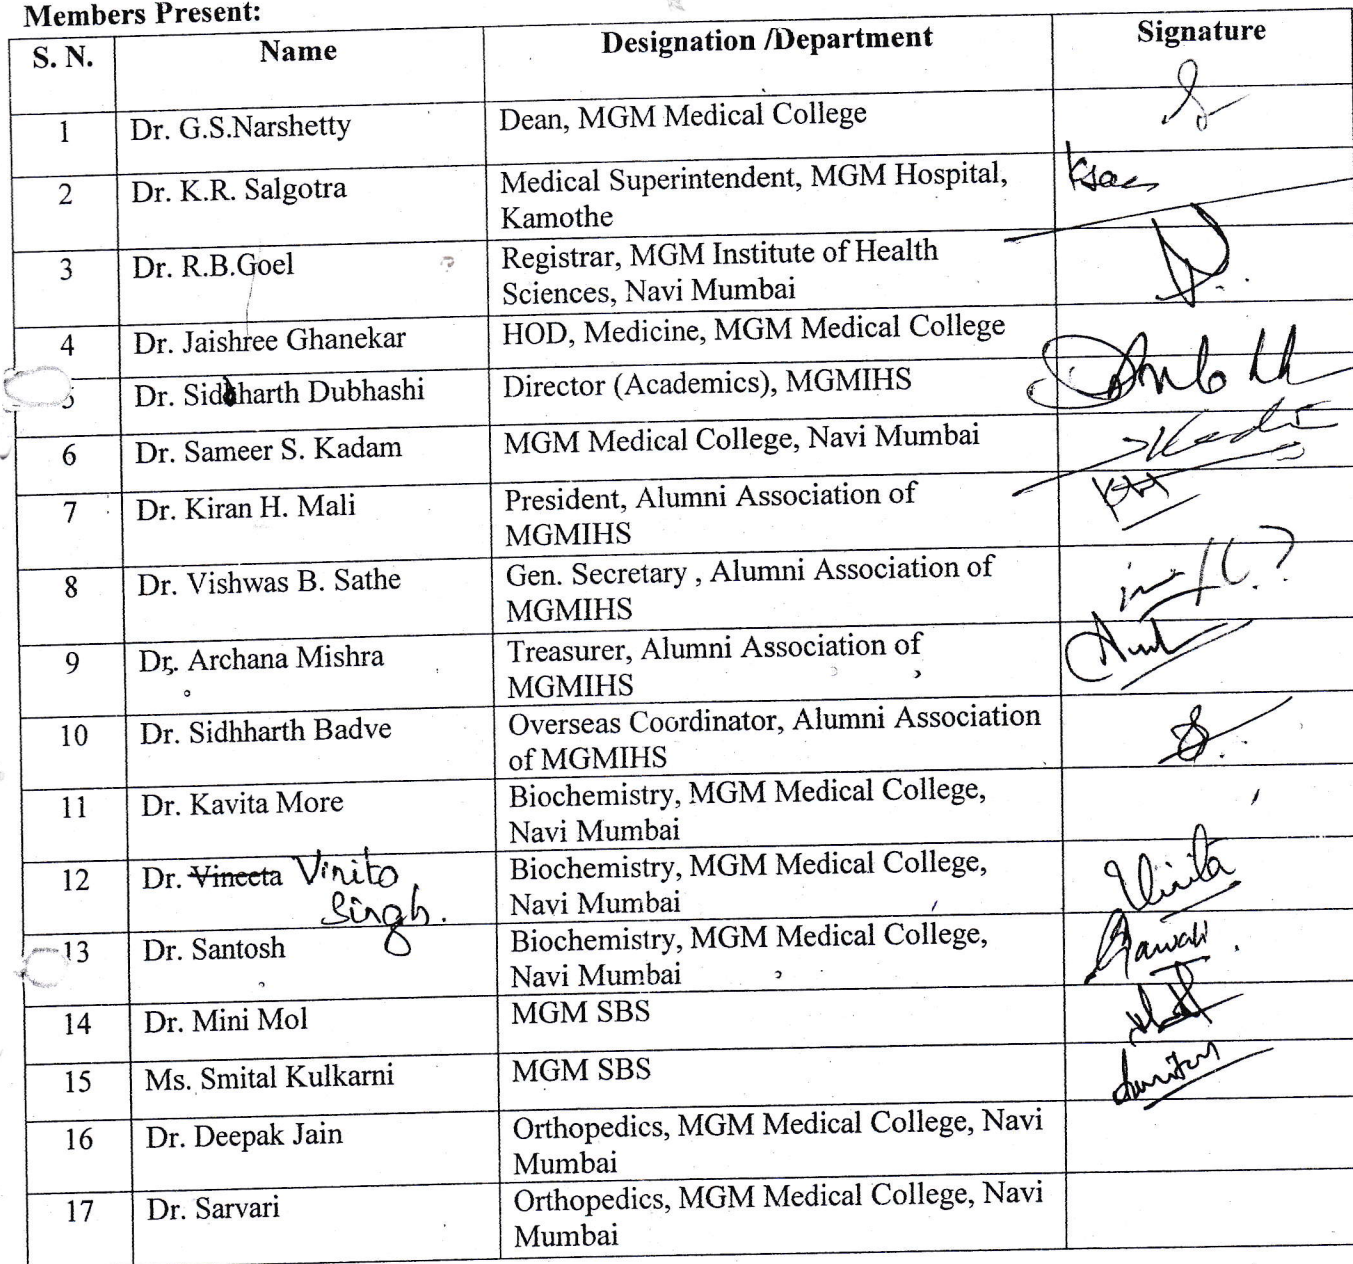 Members Present:
S. N. Name Designation /Department Signature
1 Dr. G.S.Narshetty Dean, MGM Medical College
2 Dr. K.R. Salgotra Medical Superintendent, MGM Hospital,
Kamothe
3 Dr. R.B.Goel Registrar, MGM Institute of Health
Sciences, Navi Mumbai
4 Dr. Jaishree Ghanekar HOD, Medicine, MGM Medical College
5 Dr. Sidhharth Dubhashi Director (Academics), MGMIHS
6 Dr. Sameer S. Kadam MGM Medical College, Navi Mumbai
7 Dr. Kiran H. Mali President, Alumni Association of
MGMIHS
8 Dr. Vishwas B. Sathe Gen. Secretary , Alumni Association of
MGMIHS
9 Dr. Archana Mishra Treasurer, Alumni Association of
MGMIHS
10 Dr. Sidhharth Badve Overseas Coordinator, Alumni Association
of MGMIHS
11 Dr. Kavita More Biochemistry, MGM Medical College,
Navi Mumbai
12 Dr. Vineeta Vinita Biochemistry, MGM Medical College, Vinita
Singh. Navi Mumbai
13 Dr. Santosh Biochemistry, MGM Medical College, Gawali
Navi Mumbai
14 Dr. Mini Mol MGM SBS
15 Ms. Smital Kulkarni MGM SBS
16 Dr. Deepak Jain Orthopedics, MGM Medical College, Navi
Mumbai
17 Dr. Sarvari Orthopedics, MGM Medical College, Navi
Mumbai